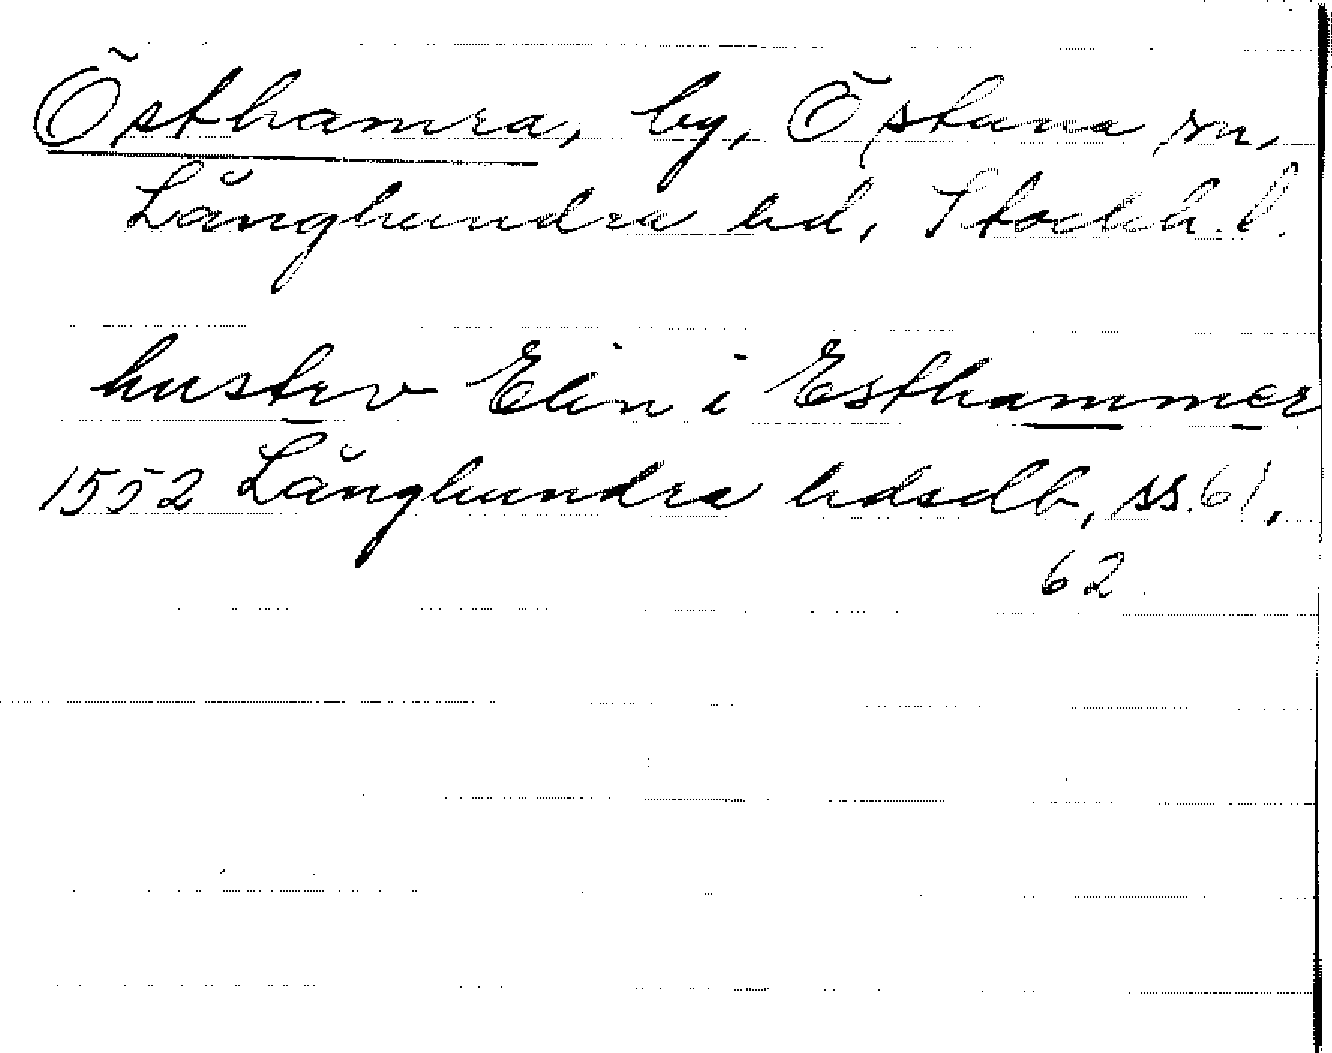 Östhamra, by, Östuna sn,
Långhundra hd, Stockh. l.
hustrv Elin i Esthammer
1552 Långhundra hdsdb, ss. 61,
62.